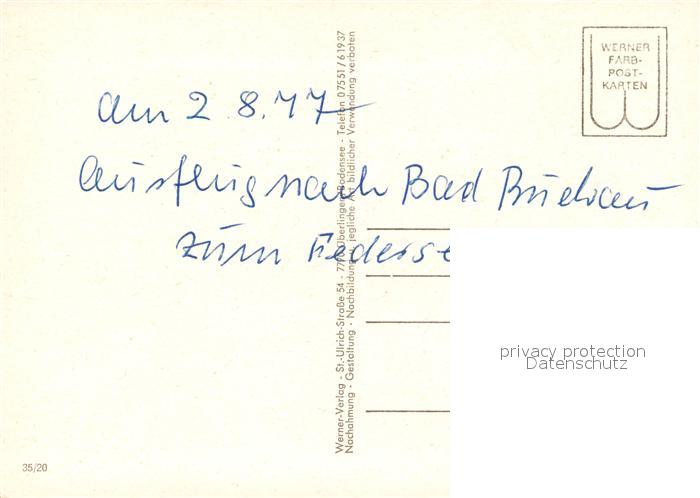 WERNER
FARB-
POST-
KARTEN
am 2 8.77
Ausflug nach Bad Buchau
zum Federse
Werner-Verlag - St.-Ulrich-Straße 54 - Überlingen/Bodensee - Telefon 07551/61937
Nachahmung - Gestaltung - Nachbildung jegliche Art bildlicher Verwendung verboten
privacy protection
Datenschutz
35/20